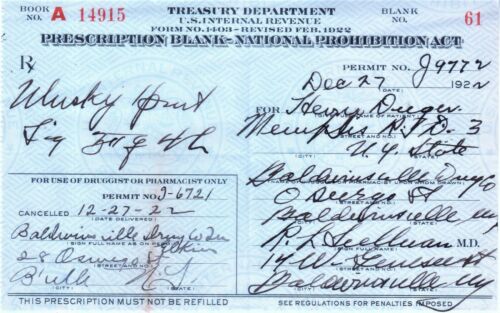 BOOK NO. A 14915
TREASURY DEPARTMENT
U.S. INTERNAL REVENUE
FORM NO. 1403 - REVISED FEB. 1922
BLANK NO. 61
PRESCRIPTION BLANK - NATIONAL PROHIBITION ACT
Rx
PERMIT NO. J9772
Dec 27 1922
Whisky Pint
FOR Henry
(FULL NAME OF PATIENT)
Sig
Memphis R.F.D. 3
(STREET AND NO.)
N.Y. State
(CITY) (STATE)
FOR USE OF DRUGGIST OR PHARMACIST ONLY
Baldwinsville Drug Co
PERMIT NO. J-6721
O St
(STREET AND NO.)
CANCELLED 12-27-22
(DATE DELIVERED)
Baldwinsville NY
(CITY) (STATE)
Baldwinsville Drug Co
(SIGN FULL NAME AS ON PERMIT)
R. L. M.D.
28 Oswego St
(STREET AND NO.)
14 W Genesee St
(STREET AND NO.)
B'ville N.Y.
(CITY) (STATE)
Baldwinsville NY
(CITY) (STATE)
THIS PRESCRIPTION MUST NOT BE REFILLED
SEE REGULATIONS FOR PENALTIES IMPOSED